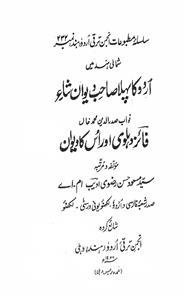 سلسلۂ مطبوعات انجمن ترقی اُردو (ہند) نمبر ۲۳۲
شمالی ہند میں
اُردو کا پہلا صاحبِ دیوان شاعر
نواب صدرالدین محمد خاں
فائز دہلوی اور اُس کا دیوان
مؤلفہ و مرتبہ
سید مسعود حسن رضوی ادیب ایم۔اے
صدر شعبۂ فارسی و اُردو، لکھنؤ یونی ورسٹی، لکھنؤ
شائع کردہ
انجمن ترقی اُردو (ہند) دہلی